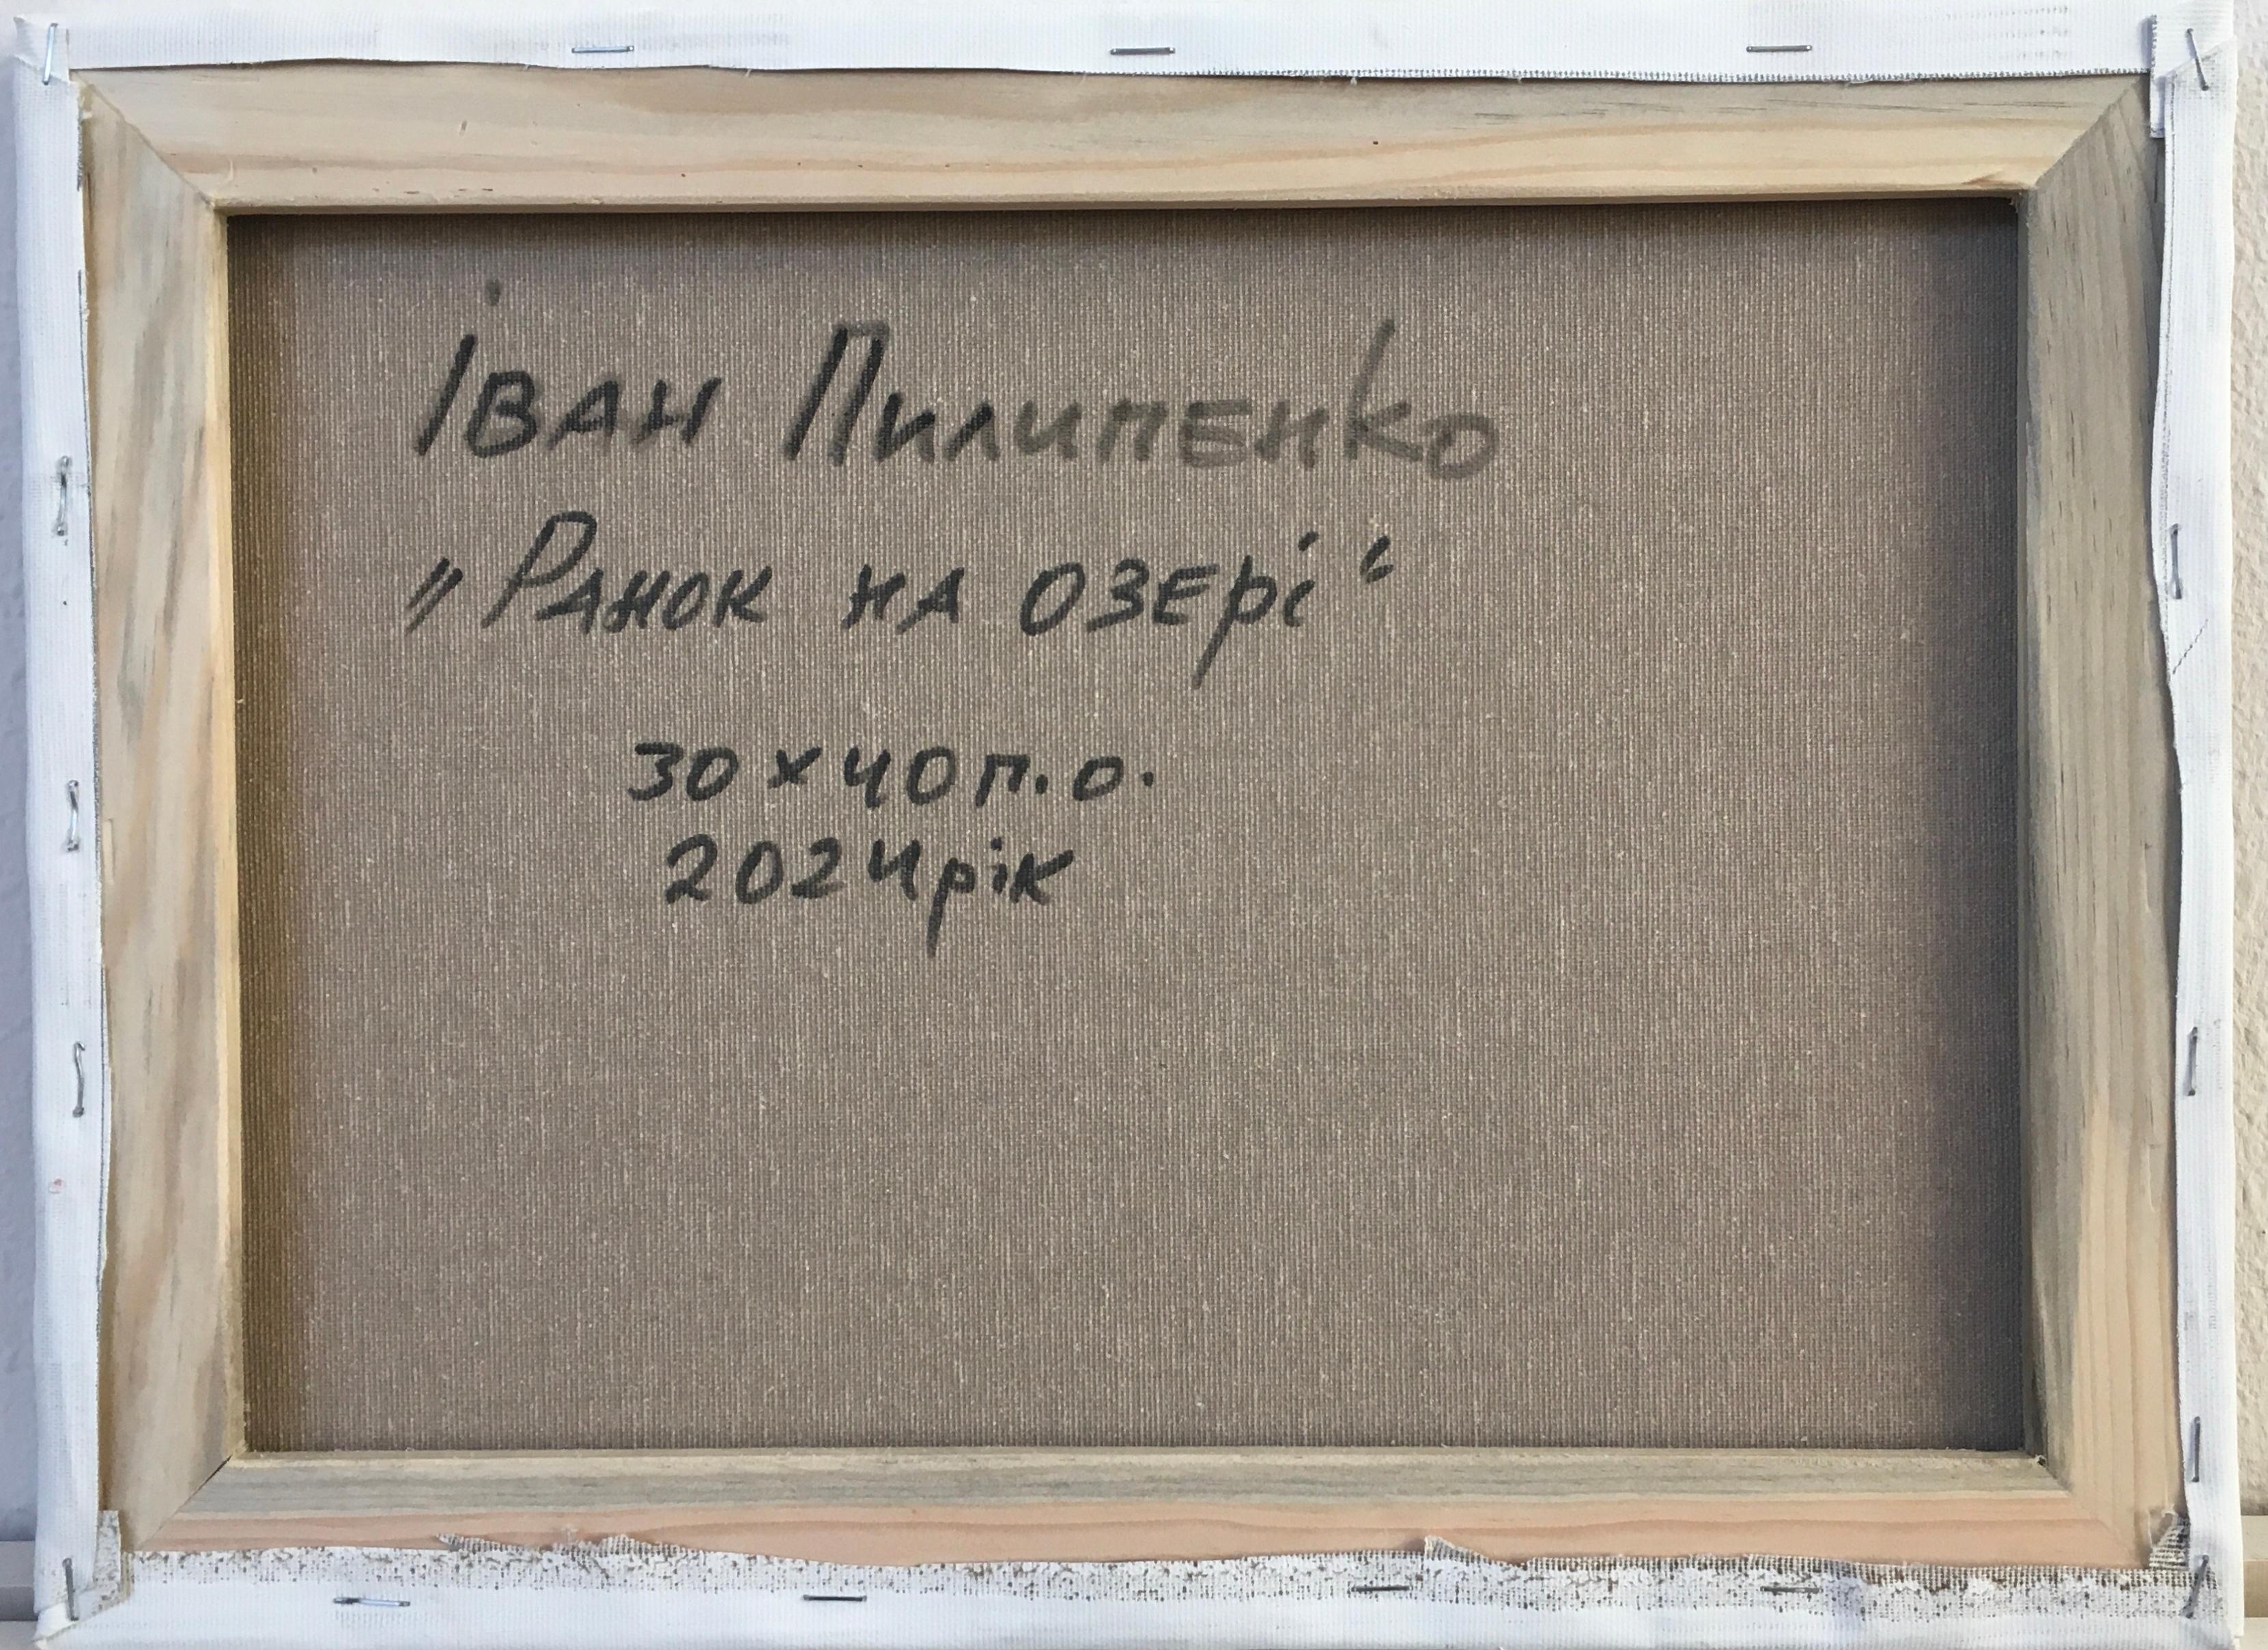 Іван Пилипенко
„Ранок на озері“
30х40 п.о.
2024рік